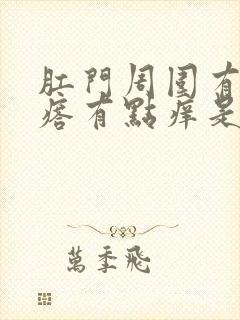 肛門周圍有
痞有點痒是
萬季飛